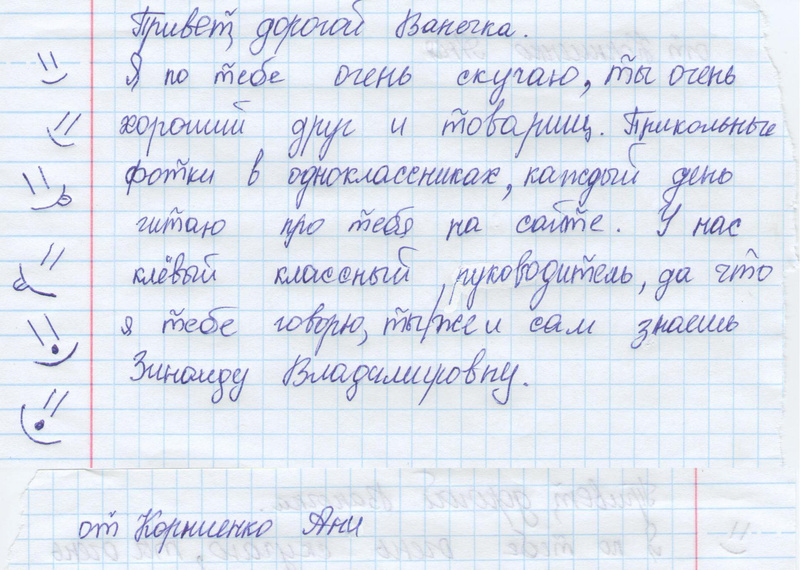 Привет, дорогой Ванечка.
Я по тебе очень скучаю, ты очень
хороший друг и товарищ. Прикольные
фотки в одноклассниках, каждый день
читаю про тебя на сайте. У нас
клёвый классный руководитель, да что
я тебе говорю, ты же и сам знаешь
Зинаиду Владимировну.
от Корниенко Ани